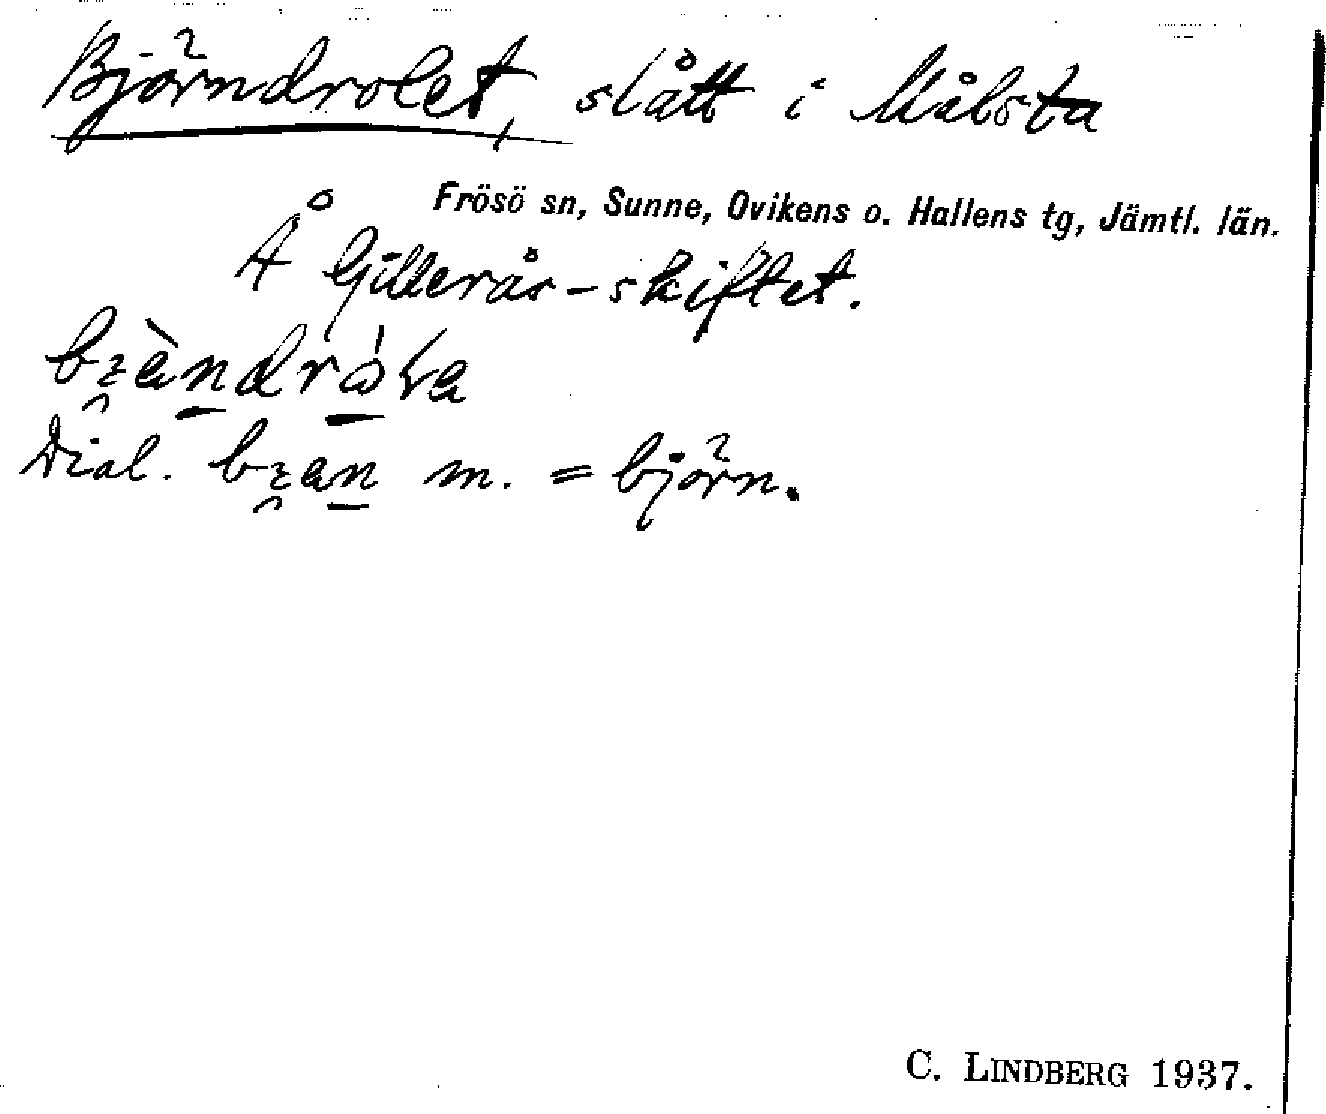 Björndrolet, slått i Målsta
Frösö sn, Sunne, Ovikens o. Hallens tg, Jämtl. län.
Å Gillerås-skiftet.
Dial. m. = björn.
C. LINDBERG 1937.